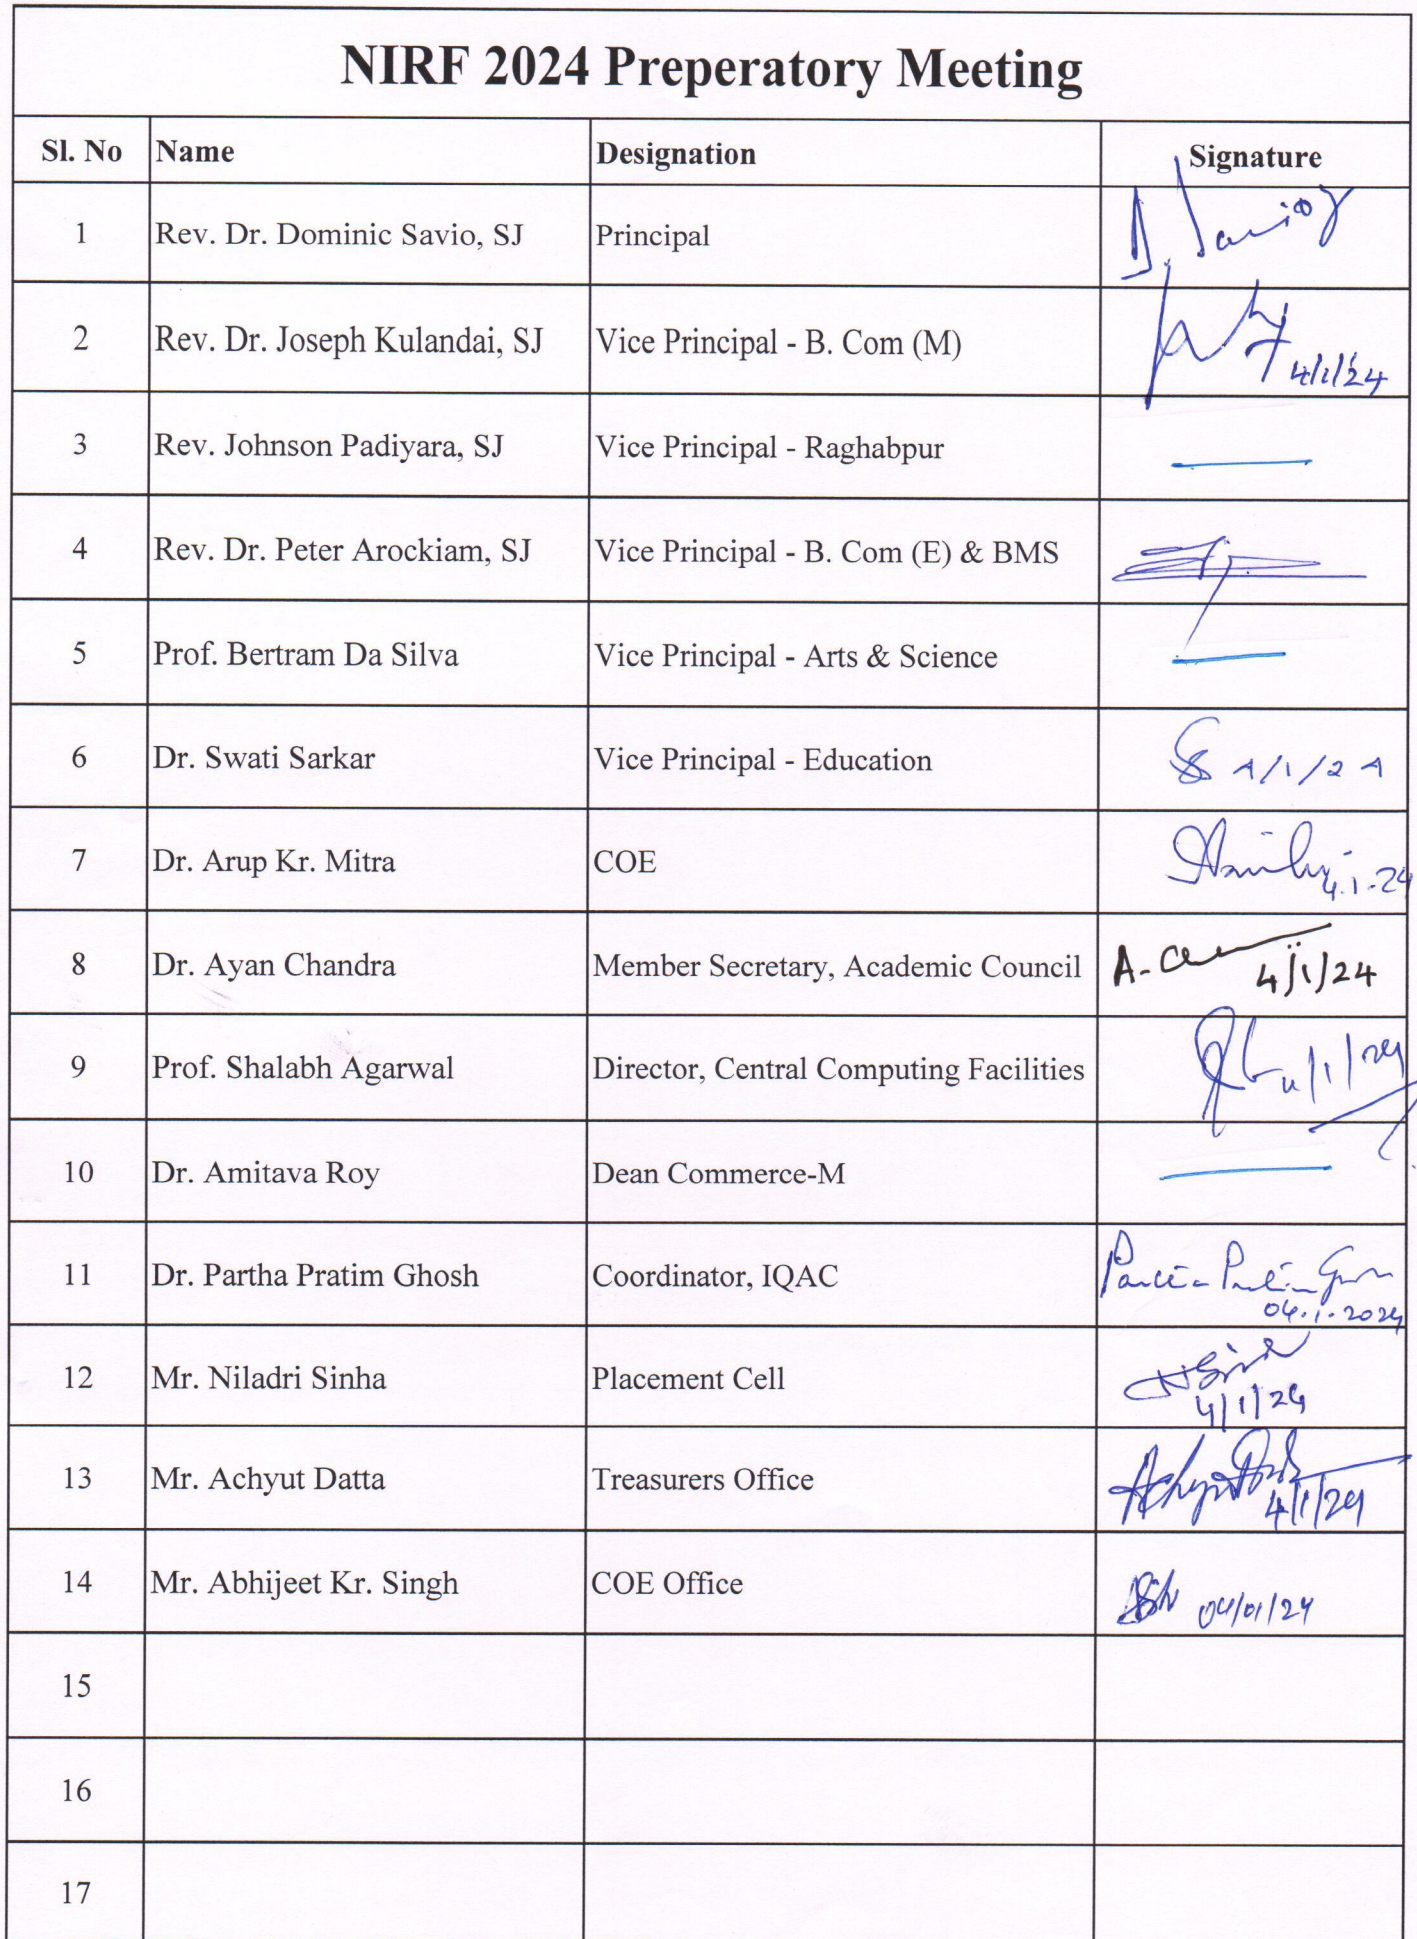 NIRF 2024 Preperatory Meeting
Sl. No Name Designation Signature
1 Rev. Dr. Dominic Savio, SJ Principal D. Savio SJ
2 Rev. Dr. Joseph Kulandai, SJ Vice Principal - B. Com (M) 4/1/24
3 Rev. Johnson Padiyara, SJ Vice Principal - Raghabpur
4 Rev. Dr. Peter Arockiam, SJ Vice Principal - B. Com (E) & BMS
5 Prof. Bertram Da Silva Vice Principal - Arts & Science
6 Dr. Swati Sarkar Vice Principal - Education 4/1/24
7 Dr. Arup Kr. Mitra COE 4.1.24
8 Dr. Ayan Chandra Member Secretary, Academic Council 4/1/24
9 Prof. Shalabh Agarwal Director, Central Computing Facilities 4/1/24
10 Dr. Amitava Roy Dean Commerce-M
11 Dr. Partha Pratim Ghosh Coordinator, IQAC Partha Pratim Ghosh
04.1.2024
12 Mr. Niladri Sinha Placement Cell NSinha
4/1/24
13 Mr. Achyut Datta Treasurers Office Achyut Datta
4/1/24
14 Mr. Abhijeet Kr. Singh COE Office 04/01/24
15
16
17